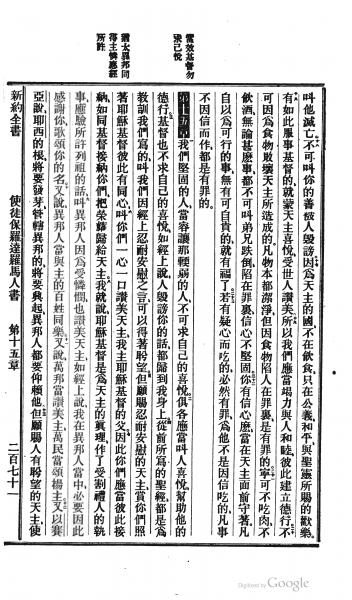 當效基督勿
求己悅
猶太異邦同
得主憐應經
所許
叫他滅亡不可叫你的善被人毀謗因爲天主的國不在飲食只在公義和平與聖靈所賜的歡樂
有如此服事基督的就蒙天主喜悅受世人讚美所以我們應當竭力與人和睦彼此建立德行不
可因爲食物敗壞天主所造成的凡物本都潔淨但因食物陷人在罪裏是有罪的寧可不吃肉不
飲酒無論甚麼事都不可叫弟兄跌倒陷在罪裏信心不堅固你有信心應當在天主面前守著凡
自以爲可行的事無有可自責的就有福了若有疑心而吃的必然有罪爲他不是因信吃的凡事
不因信而作都是有罪的
第十五章我們堅固的人當容讓那輭弱的人不可求自己的喜悅俱各應當叫人喜悅幫助他的
德行基督也不求自己的喜悅如經上說人毀謗你的話都歸到我身上從前所寫的聖經都是爲
教訓我們寫的叫我們因經上忍耐安慰之言可以得著盼望但願賜忍耐安慰的天主賞你們照
著耶穌基督彼此有同心叫你們一心一口讚美天主我主耶穌基督的父因此你們應當彼此接
納如同基督接納你們把榮耀歸給天主我就說耶穌基督是爲天主的真理作了受割禮人的執
事應驗所許列祖的話叫異邦人因爲受憐憫也讚美天主如經上說我在異邦人當中必要因此
感謝你歌頌你的名又說異邦人當與主的百姓同樂又說萬邦當讚美主萬民當頌揚主又以賽
亞說耶西的根將要發芽管轄異邦的將要興起異邦人都要仰賴他但願賜人有盼望的天主使
新約全書 使徒保羅達羅馬人書 第十五章 二百七十一
Digitized by Google